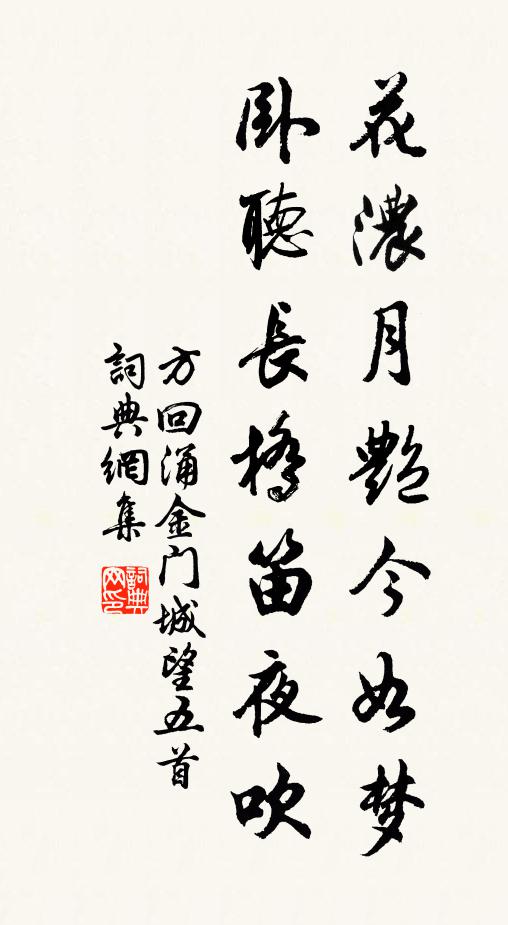 花濃月艷今如梦
卧聽長橋笛夜吹
方回涌金门城望五首
詞典網集
詞典网印